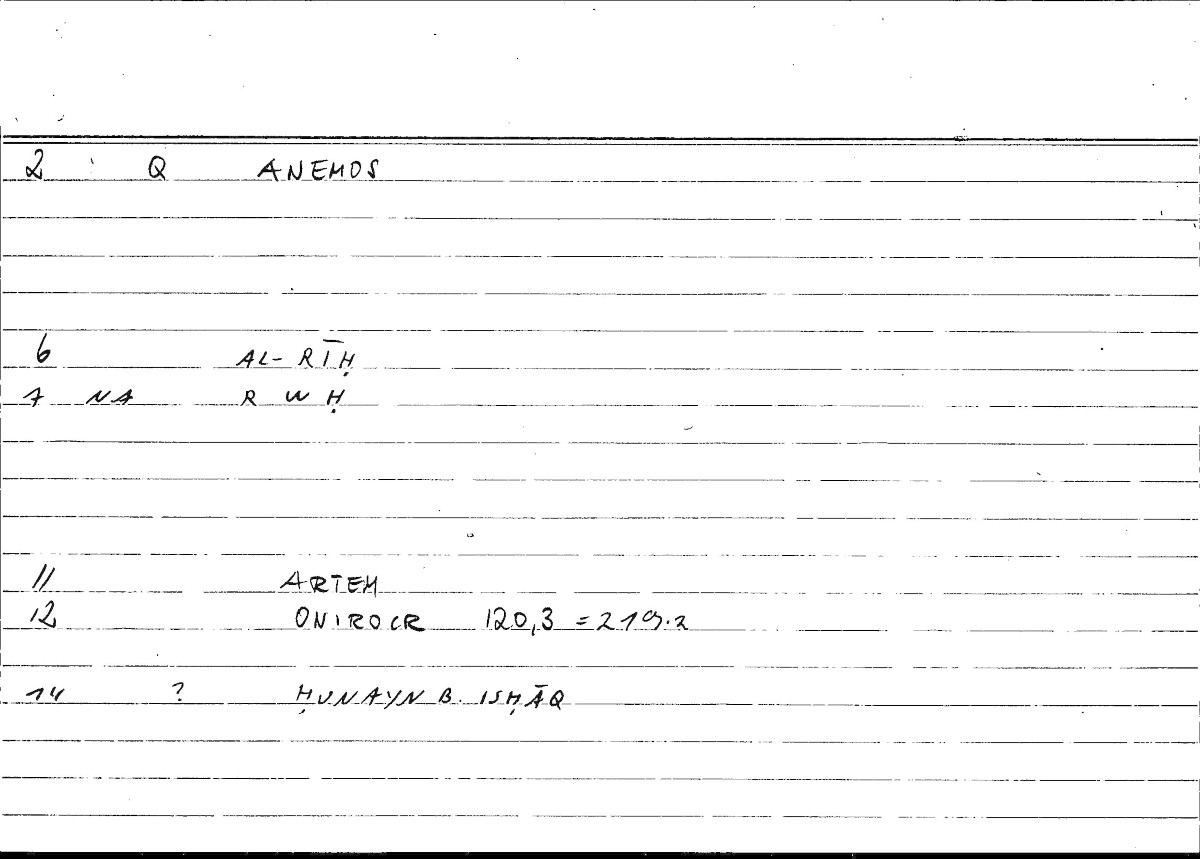 2 Q ANEMOS
6 AL-RĪḤ
7 NA R W Ḥ
11 ARTEM
12 ONIROCR 120,3 = 219.2
14 ? ḤUNAYN B. ISḤĀQ